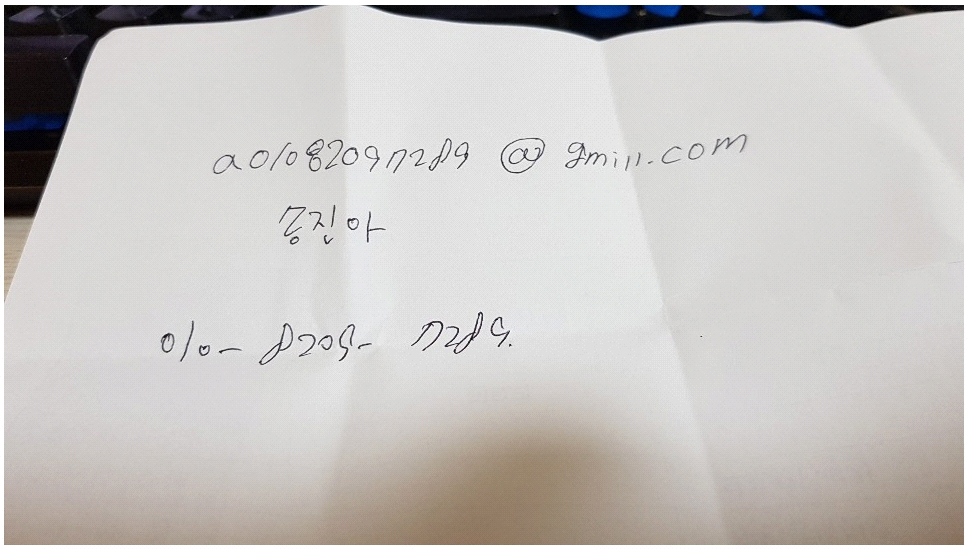 a01082097289 @ gmail.com
홍진아
010- 8209- 7289.